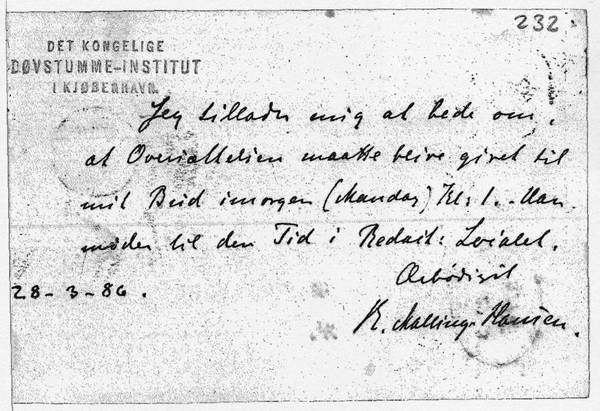 232
DET KONGELIGE
DØVSTUMME-INSTITUT
I KJØBENHAVN.
Jeg tillader mig at bede om,
at Oversættelsen maatte blive givet til
mit Bud imorgen (Mandag) Kl: 1. Han
møder til den Tid i Redact: Localet.
Ærbødigst
28-3-86.
R. Malling-Hansen.